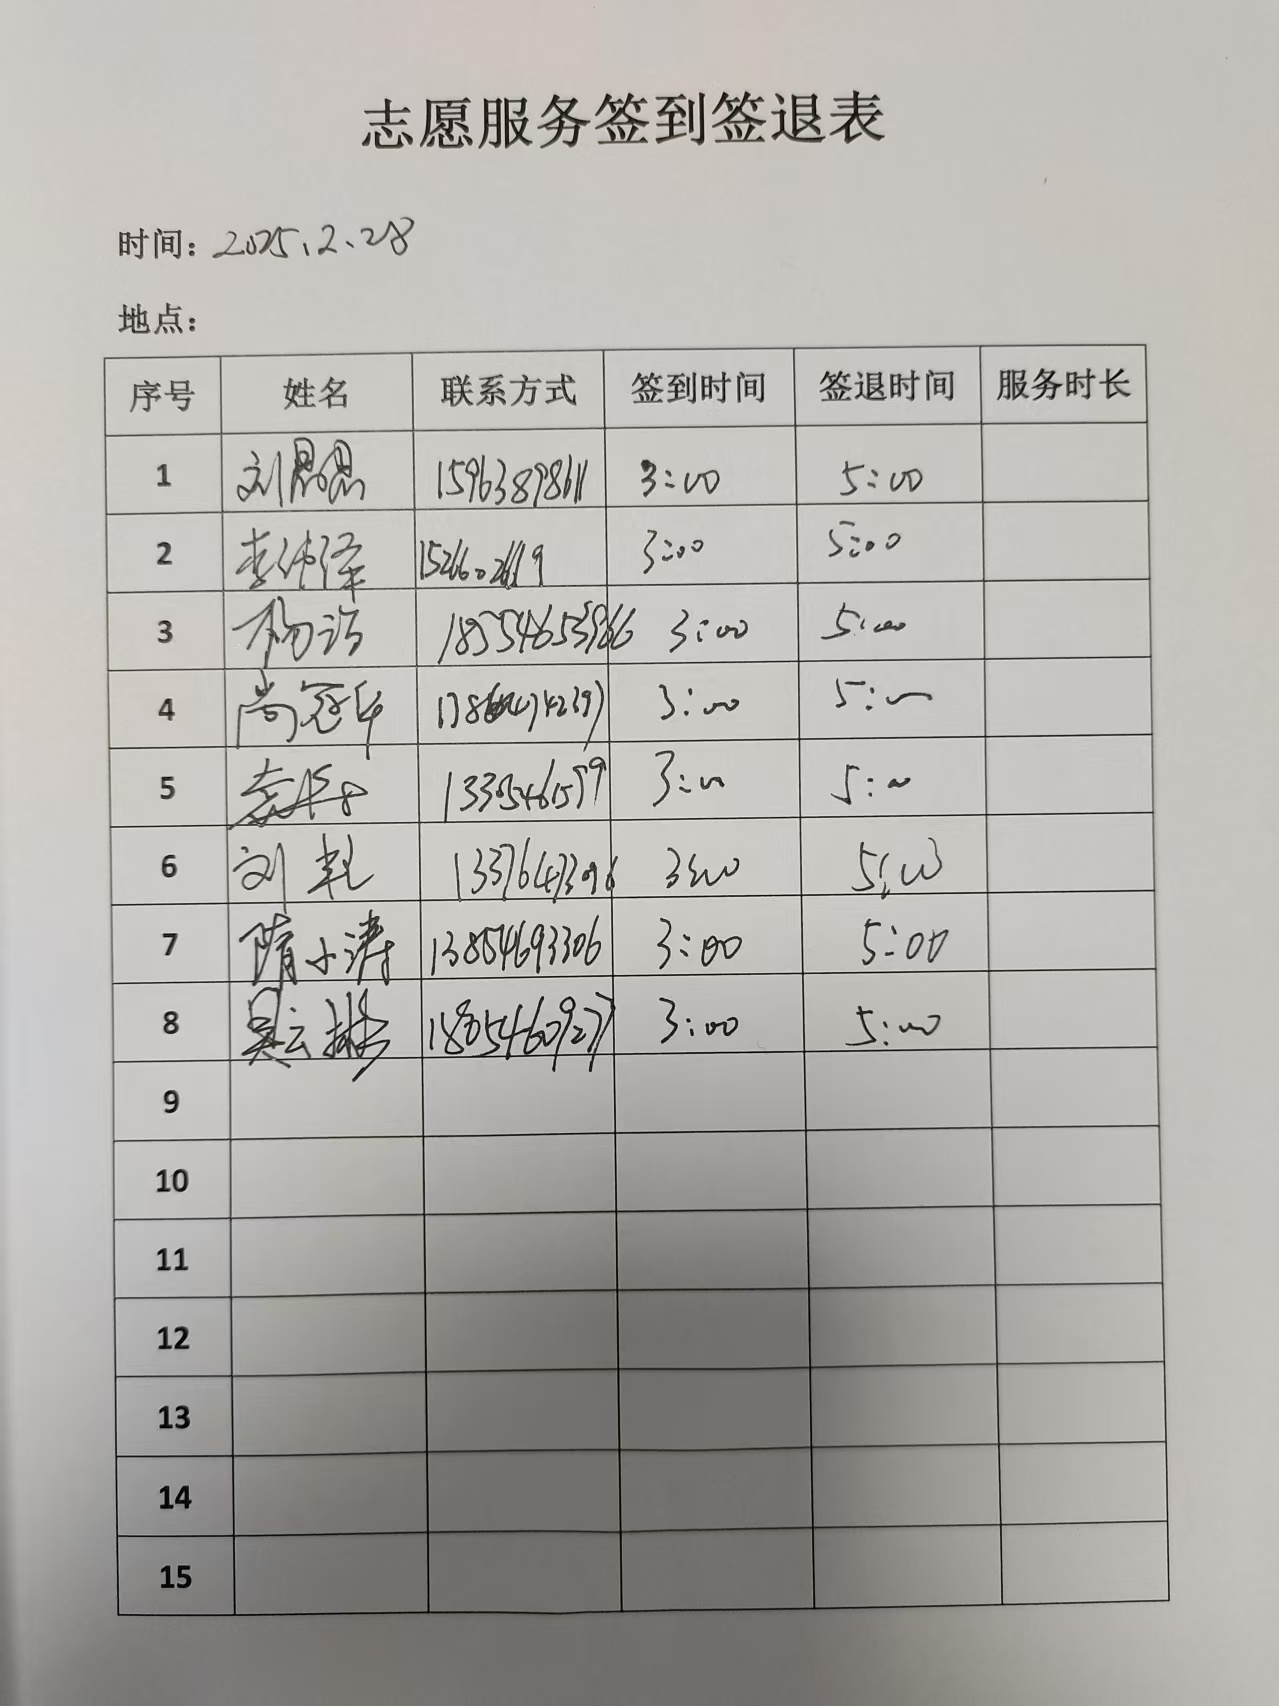 志愿服务签到签退表
时间：2025.2.28
地点：
序号 姓名 联系方式 签到时间 签退时间 服务时长
1 刘 15963898611 3:00 5:00
2 李 3:00 5:00
3 杨 18554653966 3:00 5:00
4 尚冠华 3:00 5:00
5 3:00 5:00
6 刘 3:00 5:00
7 隋小涛 13854693306 3:00 5:00
8 吴云 18054609277 3:00 5:00
9
10
11
12
13
14
15